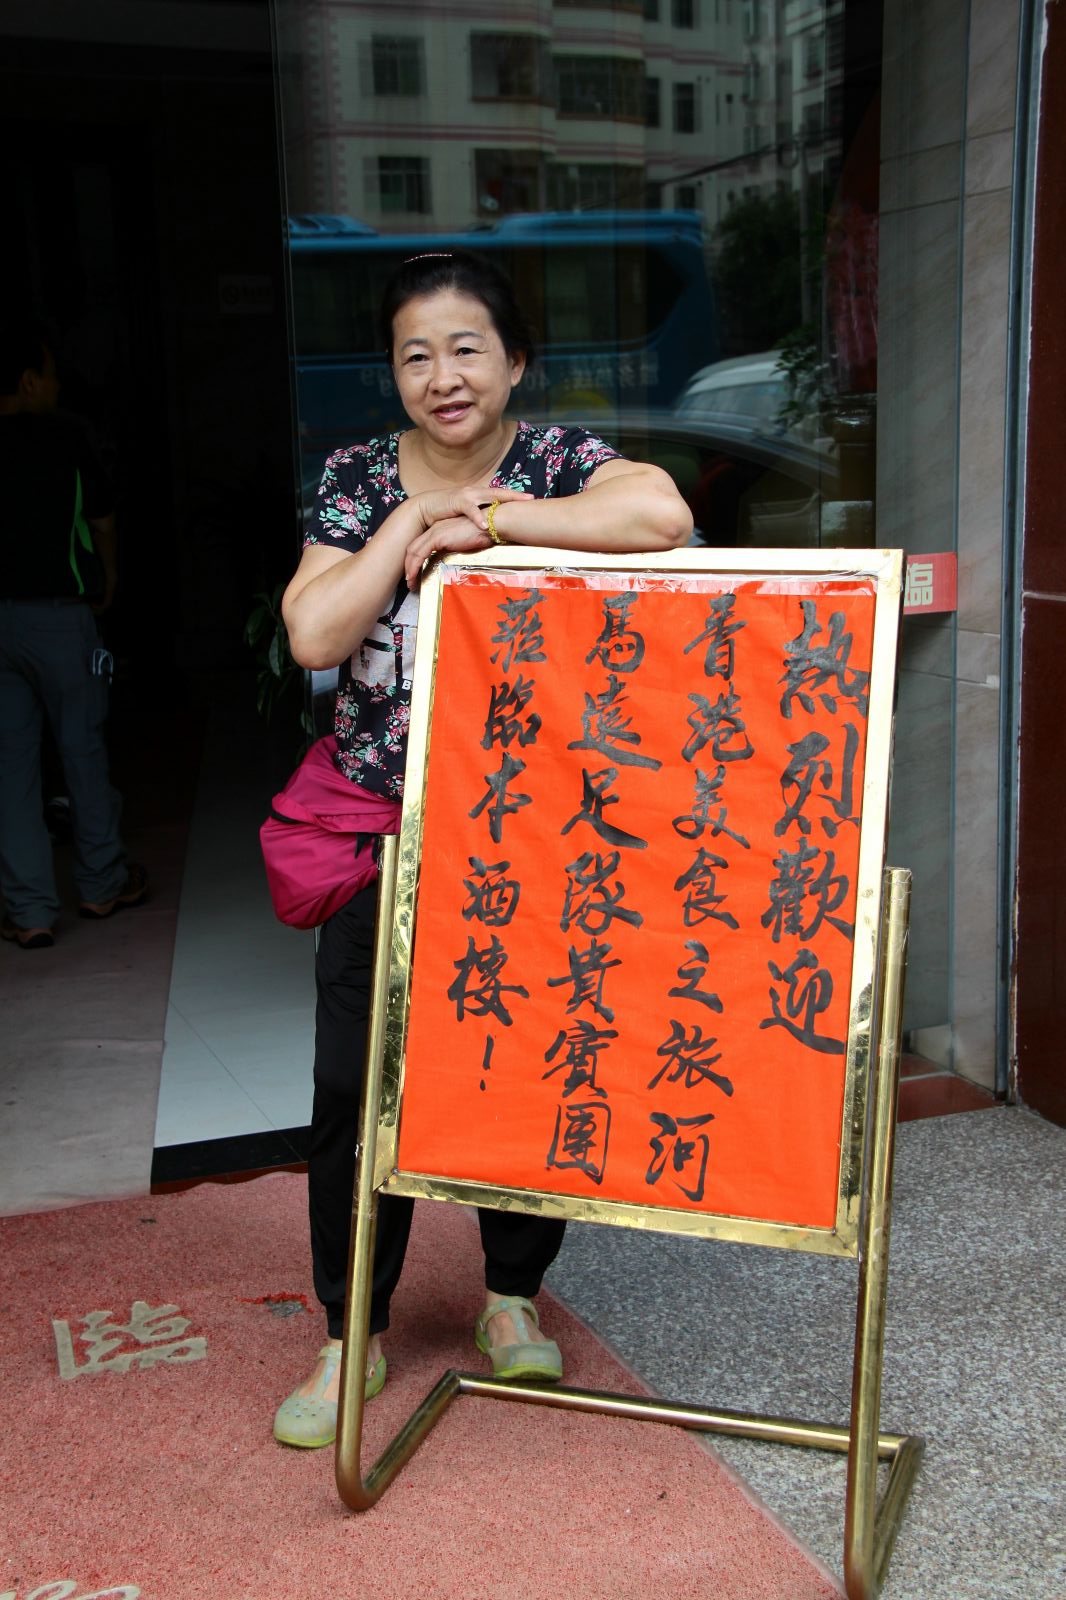 熱烈歡迎
香港美食之旅河
馬遠足隊貴賓團
莅臨本酒樓！
臨
臨